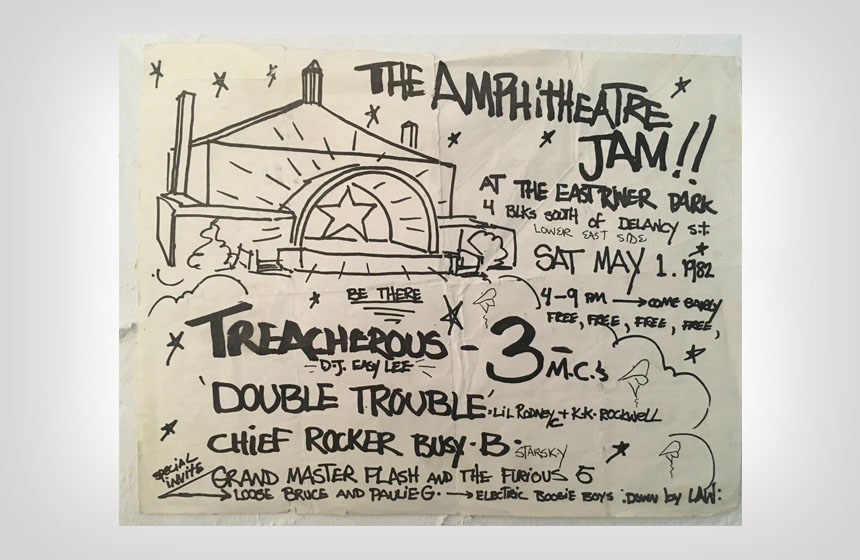 THE AMPHITHEATRE
JAM!!
AT THE EAST RIVER PARK
4 BLKS SOUTH OF DELANCY St.
LOWER EAST SIDE
SAT MAY 1. 1982
4-9 PM → COME EARLY
FREE, FREE, FREE, FREE,
BE THERE
TREACHEROUS - 3 - M.C.'s
D.J. EASY LEE
'DOUBLE TROUBLE' . LIL RODNEY C + K.K. ROCKWELL
CHIEF ROCKER BUSY-B. STARSKY
SPECIAL INVITE
GRAND MASTER FLASH AND THE FURIOUS 5
→ LOOSE BRUCE AND PAULIE G. → ELECTRIC BOOGIE BOYS :DOWN by LAW: